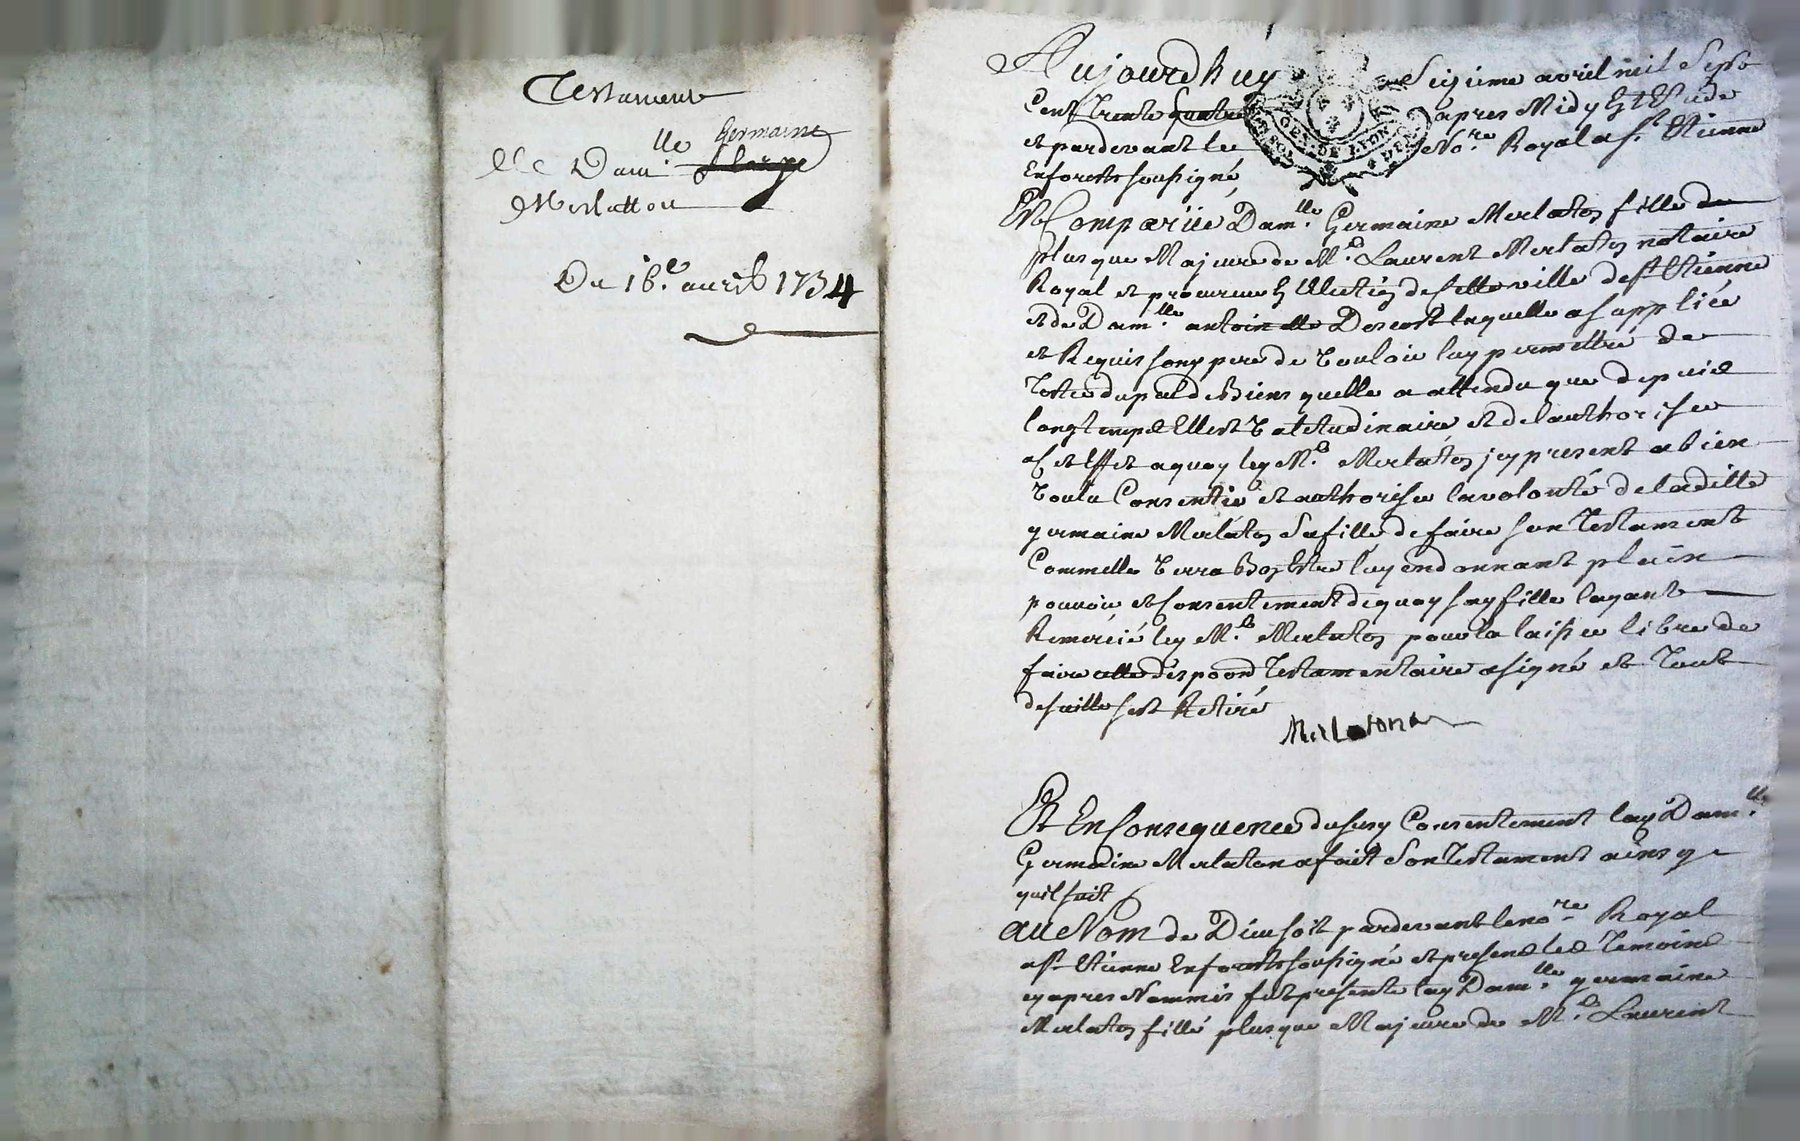 Testament
Germaine
de Dam.lle
Merlatton
Du 16.e avril 1734
Aujourdhuy Seizieme avril mil Sept
Cent Trente quatre apres Midy En Etude
et pardevant le No.re Royal a St. Etienne
En forests soussigné,
Est Comparüe Dam.lle Germaine Merlaton fille
plus que Majeure de M.e Laurent Merlaton notaire
Royal et procureur En Election de cette ville de St Etienne
et de Dam.lle antoinette laquelle a supplié
et Requis son pere de vouloir luy permettre de
Tester du peu de Biens quelle a attendu que depuis
longtemps Elle est Valetudinaire et de lauthoriser
a cet Effet a quoy led M.e Merlaton icy present a bien
voulu Consentir et authoriser la volonté de laditte
germaine Merlaton Sa fille de faire son Testament
Comme elle verra Bon Estre luy en donnant plein
pouvoir et Consentement de quoy sa fille layant
Remercié led M.e Merlaton pour la laisser libre de
faire cette dispoon Testamentaire a signé et Tout
de suitte sest Retiré
Merlaton
Et En Consequence dudit Consentement lad Dam.lle
Germaine Merlaton a fait Son Testament ainsy
quil suit
au Nom de Dieu soit pardevant le no.re Royal
a St Etienne En forests soussigné et presens les Temoins
cy apres Nommés fut presente lad Dam.lle germaine
Merlaton fille plus que Majeure de M.e Laurent
GEN. DE LYON